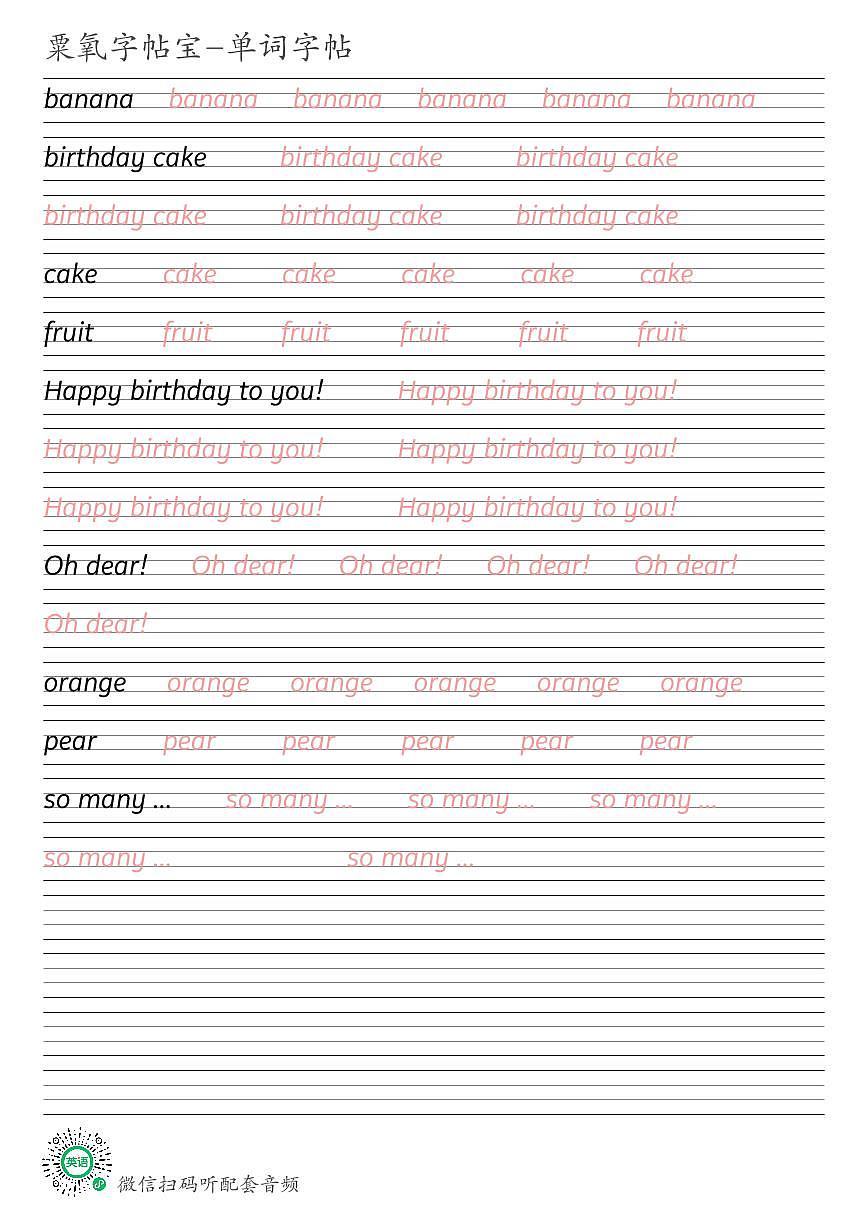 粟氧字帖宝-单词字帖
banana banana banana banana banana banana
birthday cake birthday cake birthday cake
birthday cake birthday cake birthday cake
cake cake cake cake cake cake
fruit fruit fruit fruit fruit fruit
Happy birthday to you! Happy birthday to you!
Happy birthday to you! Happy birthday to you!
Happy birthday to you! Happy birthday to you!
Oh dear! Oh dear! Oh dear! Oh dear! Oh dear!
Oh dear!
orange orange orange orange orange orange
pear pear pear pear pear pear
so many ... so many ... so many ... so many ...
so many ... so many ...
英语
微信扫码听配套音频